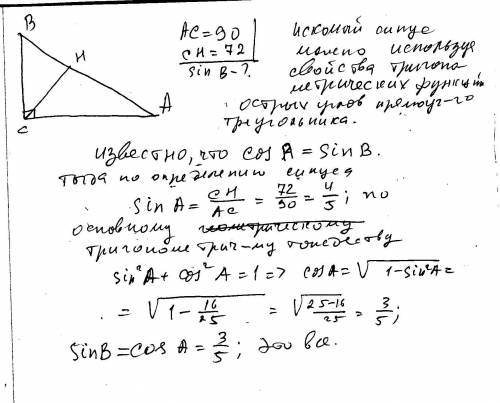 B
H
A
C
AC=90
CH=72
sin B-?
искомый синус
можно используя
свойства тригоно
метрических функций
острых углов прямоуг-го
треугольника.
известно, что cos A = sin B.
тогда по определению синуса
sin A = CH/AC = 72/90 = 4/5; по
основному
тригонометрич-му тождеству
sin²A + cos²A = 1 => cosA = √1-sin²A =
= √1 - 16/25 = √25-16/25 = 3/5;
sinB = cos A = 3/5; это все.